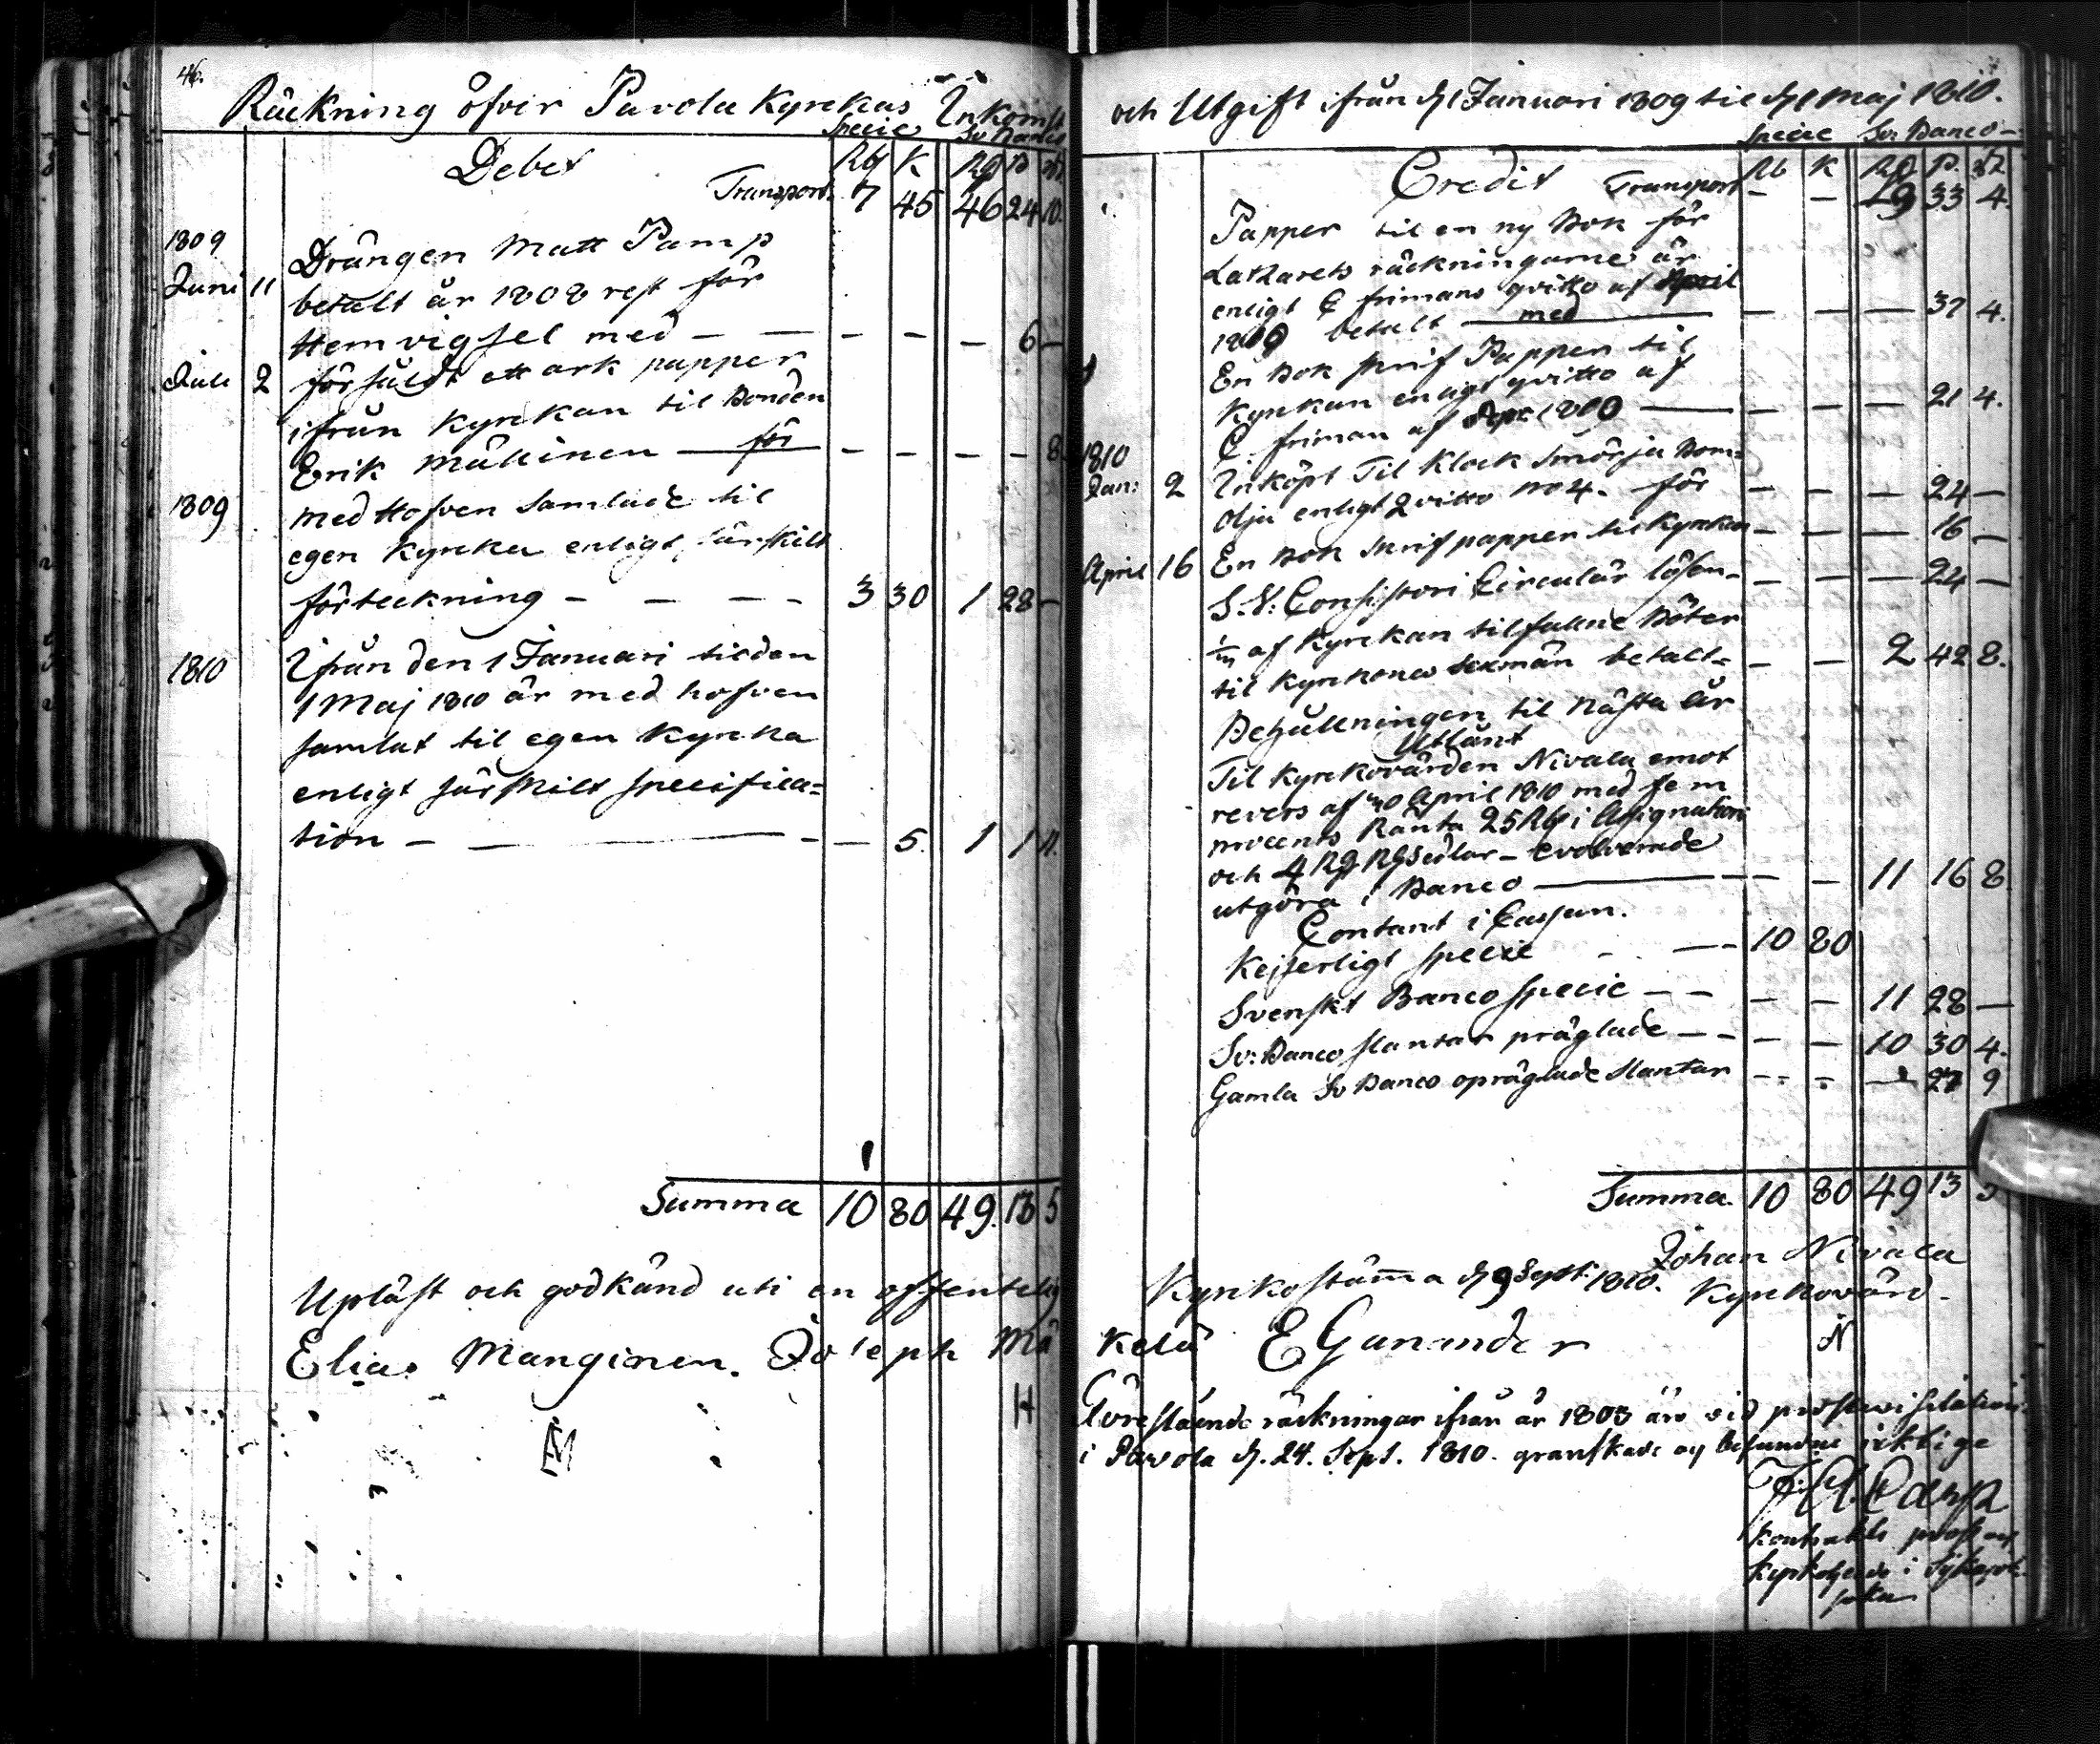 46.
Räckning öfver Pavola Kyrckas Inkomst
Specie Sv Banco
Debet Rbl K Rd ß rst
Transport. 7 45 46 24 10.
1809
Juni 11 Drängen Matt Pamp
betalt år 1808 rest för
Hemvigsel med — — — — — 6 —
Juli 2 försåldt ett ark papper
ifrån Kyrckan til Bonden
Erik Mällinen — för — — — — 8
1809 med Hofven Samlade til
egen Kyrcka enligt särskilt
förteckning — — — — 3 30 1 28 —
1810 Ifrån den 1 Januari til den
1 Maj 1810 är med hofven
samlat til egen Kyrcka
enligt särskilt specifica=
tion — — — — 5. 1 1 11.
Summa 10 80 49. 13 5
Upläst och godkänd uti en offentelig
Elias Manginen. Joseph Mä
H
EM
och Utgift ifrån d 1 Januari 1809 til d 1 Maj 1810.
Specie Sv: Banco —
Credit Rb K Rd ß. rst
Transport — — 19 33 4.
Papper til en ny Bok för
Lazarets räckningarne är
enligt C friman qvitto af April
1809 betalt — med — — — — 37 4.
En Bok skrif Papper til
Kyrckan enligt qvitto af
C. friman af Apr. 1809 — — — — 21 4.
1810
Jan: 2 Inköpt Til Klock Smörja Bom=
olja enligt Qvitto no 4. för — — — 24 —
En Bok skrifpapper til Kyrckan — — — 16 —
April 16 S. V: Consistori Circulär lösen — — — 24 —
af Kyrckan tilfallne Böter
til Kyrckones Sexmän betalt — — — 2 42 8.
Behållningen til Nästa år
Utlånt
Til Kyrckovärden Nivala emot
revers af 30 April 1810 med fem
procents Ränta 25 Rbl i Assignationer
och 4 Rd Rgsedlar — evolverade
utgöra i Banco — — — 11 16 8
Contant i Cassan.
Kejserligt specie — — 10 80
Svenskt Banco specie — — — — 11 28 —
Sv: Banco slantar präglade — — — — 10 30 4.
Gamla Sv Banco opräglade slantar — — — 27 9
Summa. 10 80 49 13 5
Johan Nivala
Kyrkostämma d 9 Sept: 1810. Kyrckovärd.
kelä E Ganander N
Förestående räkningar ifrån år 1803 äro vid prostvisitation
i Pavola d. 24. Sept. 1810. granskade och befundne riktige
kontrakts prost och
kyrkoherde i Sijkajok